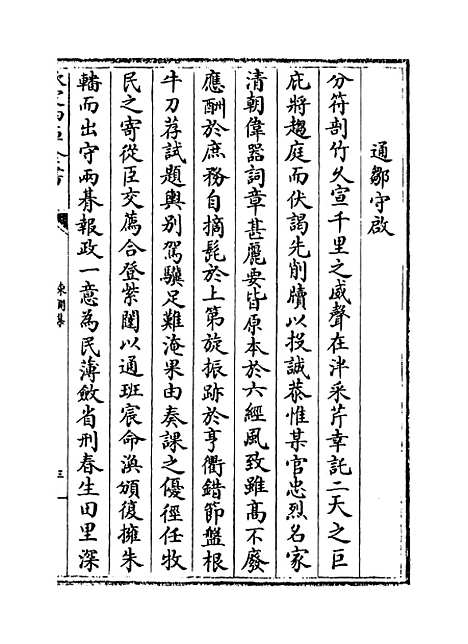 通鄒守啟
分符剖竹久宣千里之威聲在泮采芹幸託二天之巨
庇將趨庭而伏謁先削牘以投誠恭惟某官忠烈名家
清朝偉器詞章甚麗要皆原本於六經風致雖高不廢
應酬於庶務自摘髭於上第旋振跡於亨衢錯節盤根
牛刀荐試題輿別駕驥足難淹果由奏課之優徑任牧
民之寄從臣交薦合登紫闥以通班宸命渙頒復擁朱
轓而出守兩朞報政一意為民薄斂省刑春生田里深
東澗集
三